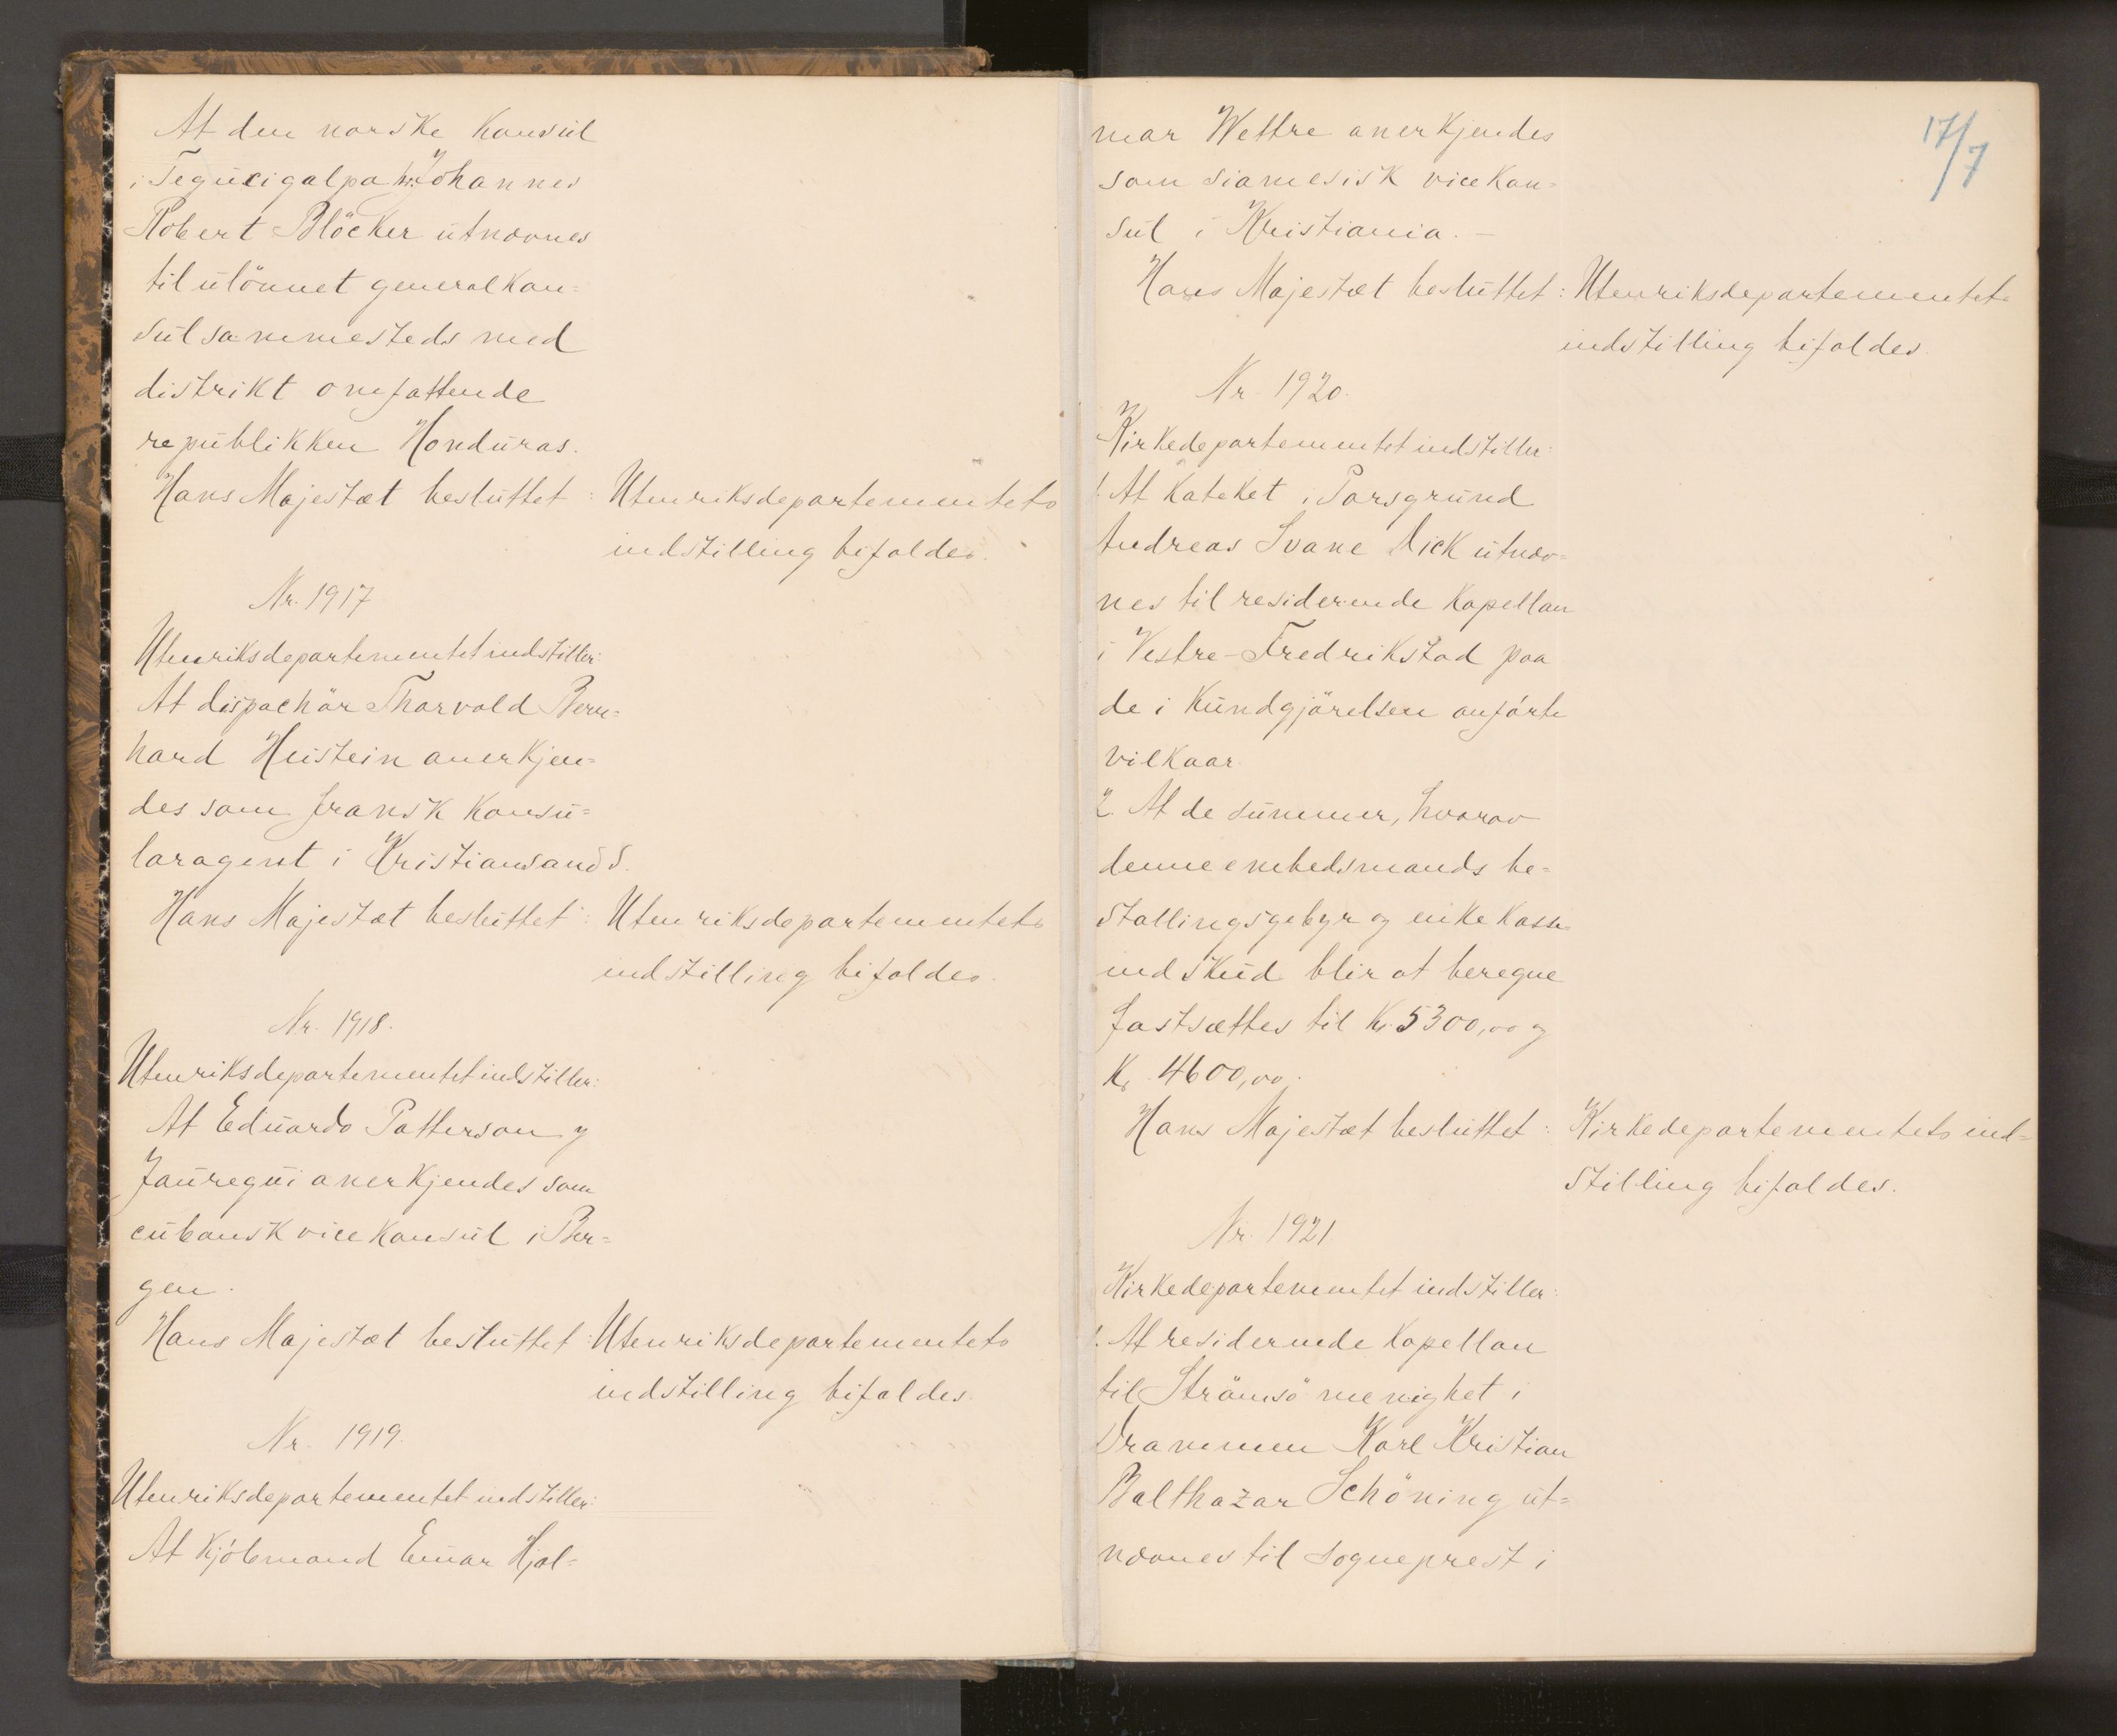 At den norske konsul
i Tegucigalpa hr. Johannes
Robert Blöcker utnævnes
til ulönnet generalkon=
sul sammesteds med
distrikt omfattende
republikken Honduras.
Hans Majestæt besluttet: Utenriksdepartementets
indstilling bifaldes.
Nr. 1917
Utenriksdepartementet indstiller:
At dispachör Thorvald Bern=
hard Heistein anerkjen=
des som fransk konsu=
laragent i Kristiansand S.
Hans Majestæt besluttet: Utenriksdepartementets
indstilling bifaldes.
Nr. 1918.
Utenriksdepartementet indstiller:
At Eduardo Patterson y
Jauregui anerkjendes som
cubansk vicekonsul i Ber=
gen.
Hans Majestæt besluttet: Utenriksdepartementets
indstilling bifaldes.
Nr. 1919.
Utenriksdepartementet indstiller:
At kjöbmand Einar Hjal=
17/7
mar Wettre anerkjendes
som siamesisk vicekon=
sul i Kristiania. –
Hans Majestæt besluttet: Utenriksdepartementets
indstilling bifaldes.
Nr. 1920.
Kirkedepartementet indstiller:
1. At kateket i Porsgrund
Andreas Svane Dick utnæv=
nes til residerende kapellan
i Vestre-Fredrikstad paa
de i kundgjörelsen anförte
vilkaar.
2. At de summer, hvorav
denne embedsmands be=
stallingsgebyr og enkekasse=
indskud blir at beregne
fastsættes til Kr. 5300,00 og
Kr. 4600,00.
Hans Majestæt besluttet: Kirkedepartementets ind=
stilling bifaldes.
Nr. 1921.
Kirkedepartementet indstiller:
1. At residerende kapellan
til Strömsö menighet i
Drammen Karl Kristian
Balthazar Schöning ut=
nævnes til sogneprest i